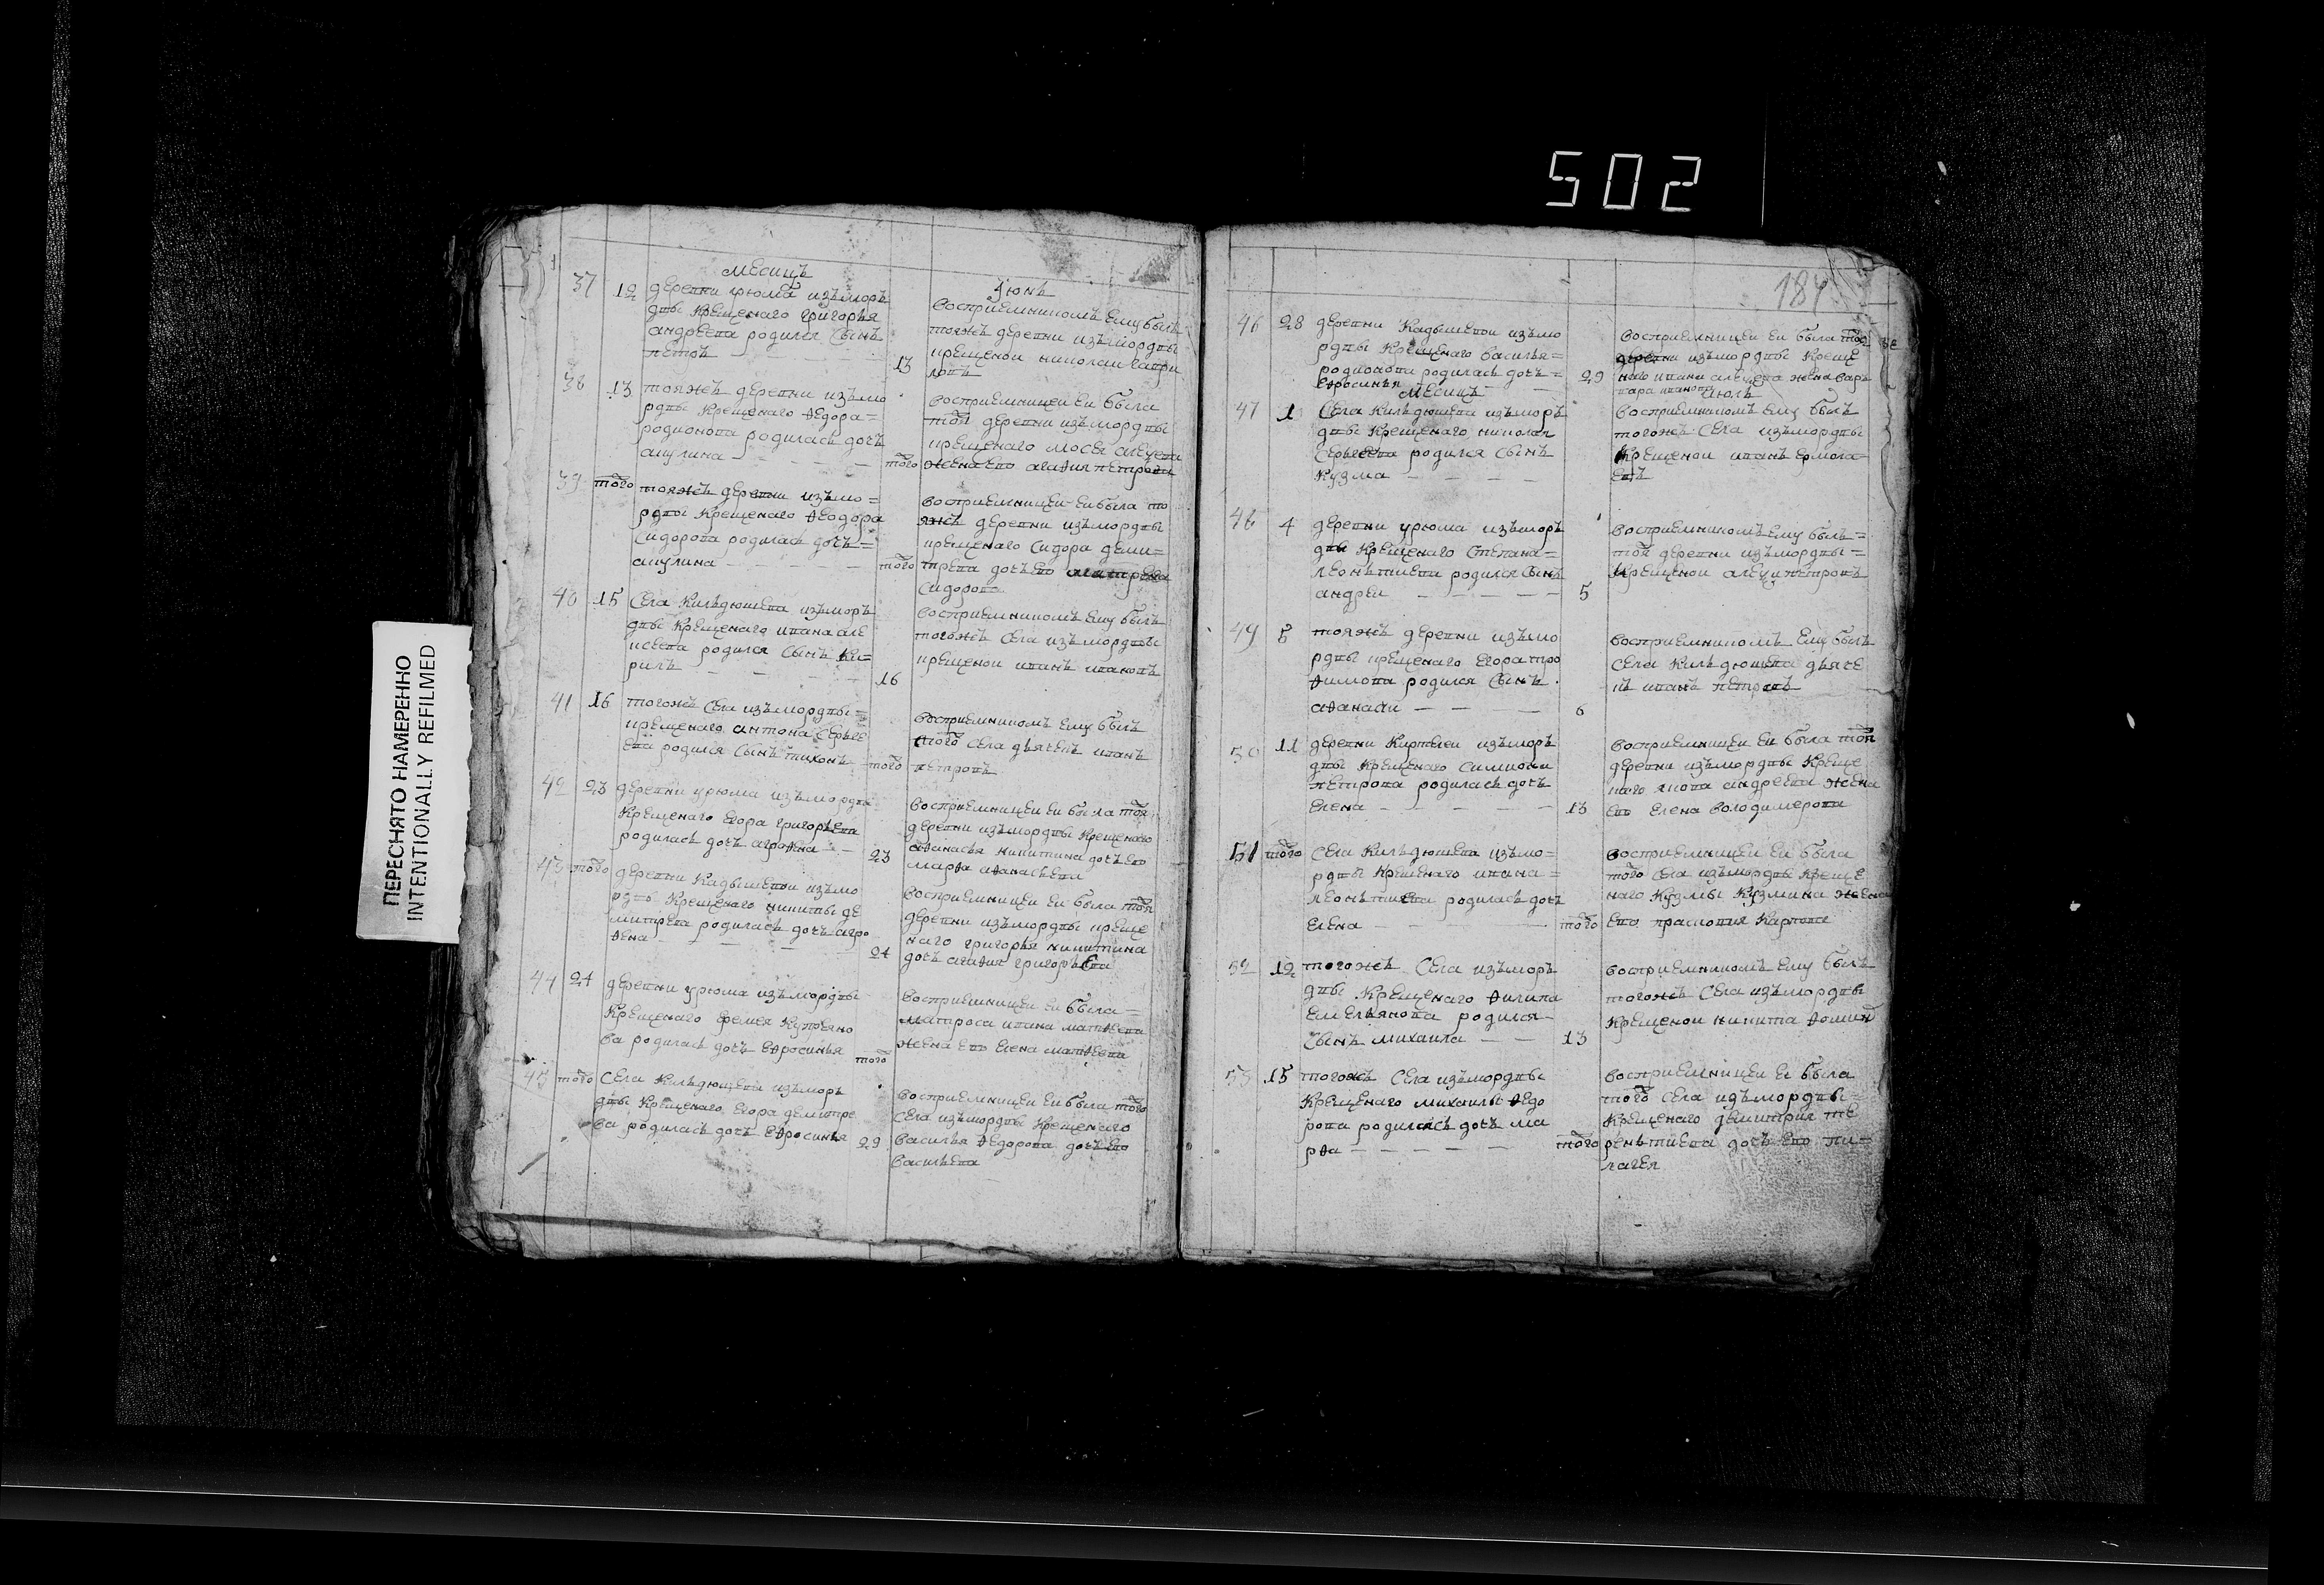 502
ПЕРЕСНЯТО НАМЕРЕННО
INTENTIONALLY REFILMED
месяцъ
июнь
37 12 деревни урюма изъ морд
вы крещенаго григорья
андреева родился сынъ
петръ
13
восприемникомъ ему былъ
тояжъ деревни изъ мордвы
крещеной николаи гаври
ловъ
38 13 тояжъ деревни изъ мо
рдвы крещенаго ѳедора
родионова родилась дочь
акулина
того
восприемницеи еи была
тоя деревни изъ мордвы
крещенаго мосея алецева
жена ево агаѳия петрова
39 того тояжъ деревни изъ мо
рдвы крещенаго ѳеодора
сидорова родилась дочь
акулина
того
восприемницеи еи была то
яжъ деревни изъ мордвы
крещенаго сидора дми
трева дочь ево
сидорова
40 15 села кильдюшева изъ мор
двы крещенаго ивана але
ксева родился сынъ ки
рилъ
16
восприемникомъ ему былъ
тогожъ села изъ мордвы
крещеной иванъ ивановъ
41 16 тогожъ села изъ мордвы
крещенаго антона сергее
ева родился сынъ тихонъ
того
восприемникомъ ему былъ
того села дьячекъ иванъ
петровъ
42 23 деревни урюма изъ мордвы
крещенаго егора григорьева
родилась дочь агроѳена
23
восприемницеи еи была тоя
деревни изъ мордвы крещенаго
аѳанасья никитина дочь ево
марѳа аѳанасьева
43 того деревни кадышевои изъ мо
рдвы крещенаго никиты де
митрева родилась дочь агро
ѳена
24
восприемницеи еи была тоя
деревни изъ мордвы креще
наго григорья никитина
дочь агаѳия григорьева
44 24 деревни урюма изъ мордвы
крещенаго фомея купреяно
ва родилась дочь еѳросинья
того
восприемницеи еи была
матроса ивана матѳеева
жена ево елена матѳеева
45 того села кильдюшева изъ мор
двы крещенаго егора демитре
ва родилась дочь еѳросинья
29
восприемницеи еи была того
села изъ мордвы крещенаго
василья ѳедорова дочь ево
васильева
184
46 28 деревни кадышевои изъ мо
рдвы крещенаго василья
родионова родилась дочь
еѳросинья
29
восприемницеи еи была тоя же
деревни изъ мордвы креще
наго ивана алецева жена вар
вара иванова
месяцъ
июль
47 1 села кильдюшева изъ мор
двы крещенаго николая
сергеева родился сынъ
кузма
восприемникомъ ему былъ
тогожъ села изъ мордвы
крещеной иванъ ермола
евъ
48 4 деревни урюма изъ мор
двы крещенаго степана
леонтиева родился сынъ
андреи
5
восприемникомъ ему былъ
тоя деревни изъ мордвы
крещеной алецей петровъ
49 5 тояжъ деревни изъ мо
рдвы крещенаго егора тро
ѳимова родился сынъ
аѳанасии
6
восприемникомъ ему былъ
села кильдюшева дьяче
къ иванъ петровъ
50 11 деревни киртелеи изъ мор
двы крещенаго симиона
петрова родилась дочь
елена
13
восприемницеи еи была тоя
деревни изъ мордвы креще
наго якова андреева жена
ево елена володимерова
51 того села кильдюшева изъ мо
рдвы крещенаго ивана
леонтиева родилась дочь
елена
того
восприемницеи еи была
того села изъ мордвы креще
наго кузмы кузмина жена
ево прасковия карпова
52 12 тогожъ села изъ мор
двы крещенаго ѳилипа
емельянова родился
сынъ михаила
13
восприемникомъ ему былъ
тогожъ села изъ мордвы
крещеной никита ѳомин
53 15 тогожъ села изъ мордвы
крещенаго михаилы ѳедо
рова родилась дочь ма
рѳа
того
восприемницеи еи была
того села изъ мордвы
крещенаго димитрия те
рентиева дочь ево пи
лагея